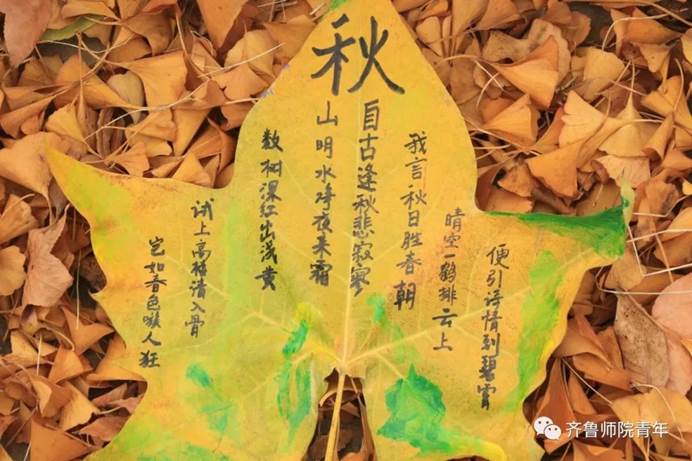 秋
自古逢秋悲寂寥
我言秋日胜春朝
晴空一鹤排云上
便引诗情到碧霄
山明水净夜来霜
数树深红出浅黄
试上高楼清入骨
岂如春色嗾人狂
齐鲁师院青年